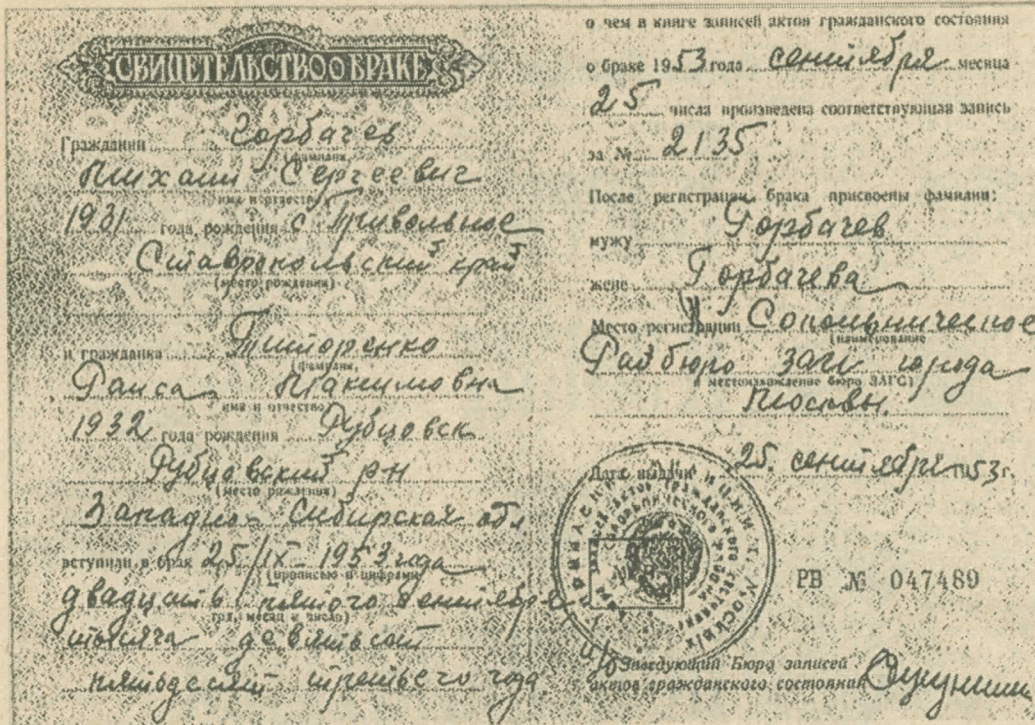 СВИДЕТЕЛЬСТВО о БРАКЕ
Гражданин Горбачев
(фамилия,
Михаил Сергеевич
имя и отчество)
1931 года рождения с Привольное
Ставропольский край
(место рождения)
и гражданка Титоренко
(фамилия,
Раиса Максимовна
имя и отчество)
1932 года рождения Рубцовск
Рубцовский рн
(место рождения)
Западно-Сибирская обл
вступили в брак 25/IX-1953 года
(прописью и цифрами
двадцать пятого сентября
год, месяц и число)
тысяча девятьсот
пятьдесят третьего года
о чем в книге записей актов гражданского состояния
о браке 1953 года сентября месяца
25 числа произведена соответствующая запись
за № 2135
После регистрации брака присвоены фамилии:
мужу Горбачев
жене Горбачева
Место регистрации Сокольническое
(наименование
Райбюро загс города
местонахождение бюро ЗАГС)
Москвы
Дата выдачи 25. сентября 1953г.
РВ № 047489
Заведующий Бюро записей
актов гражданского состояния